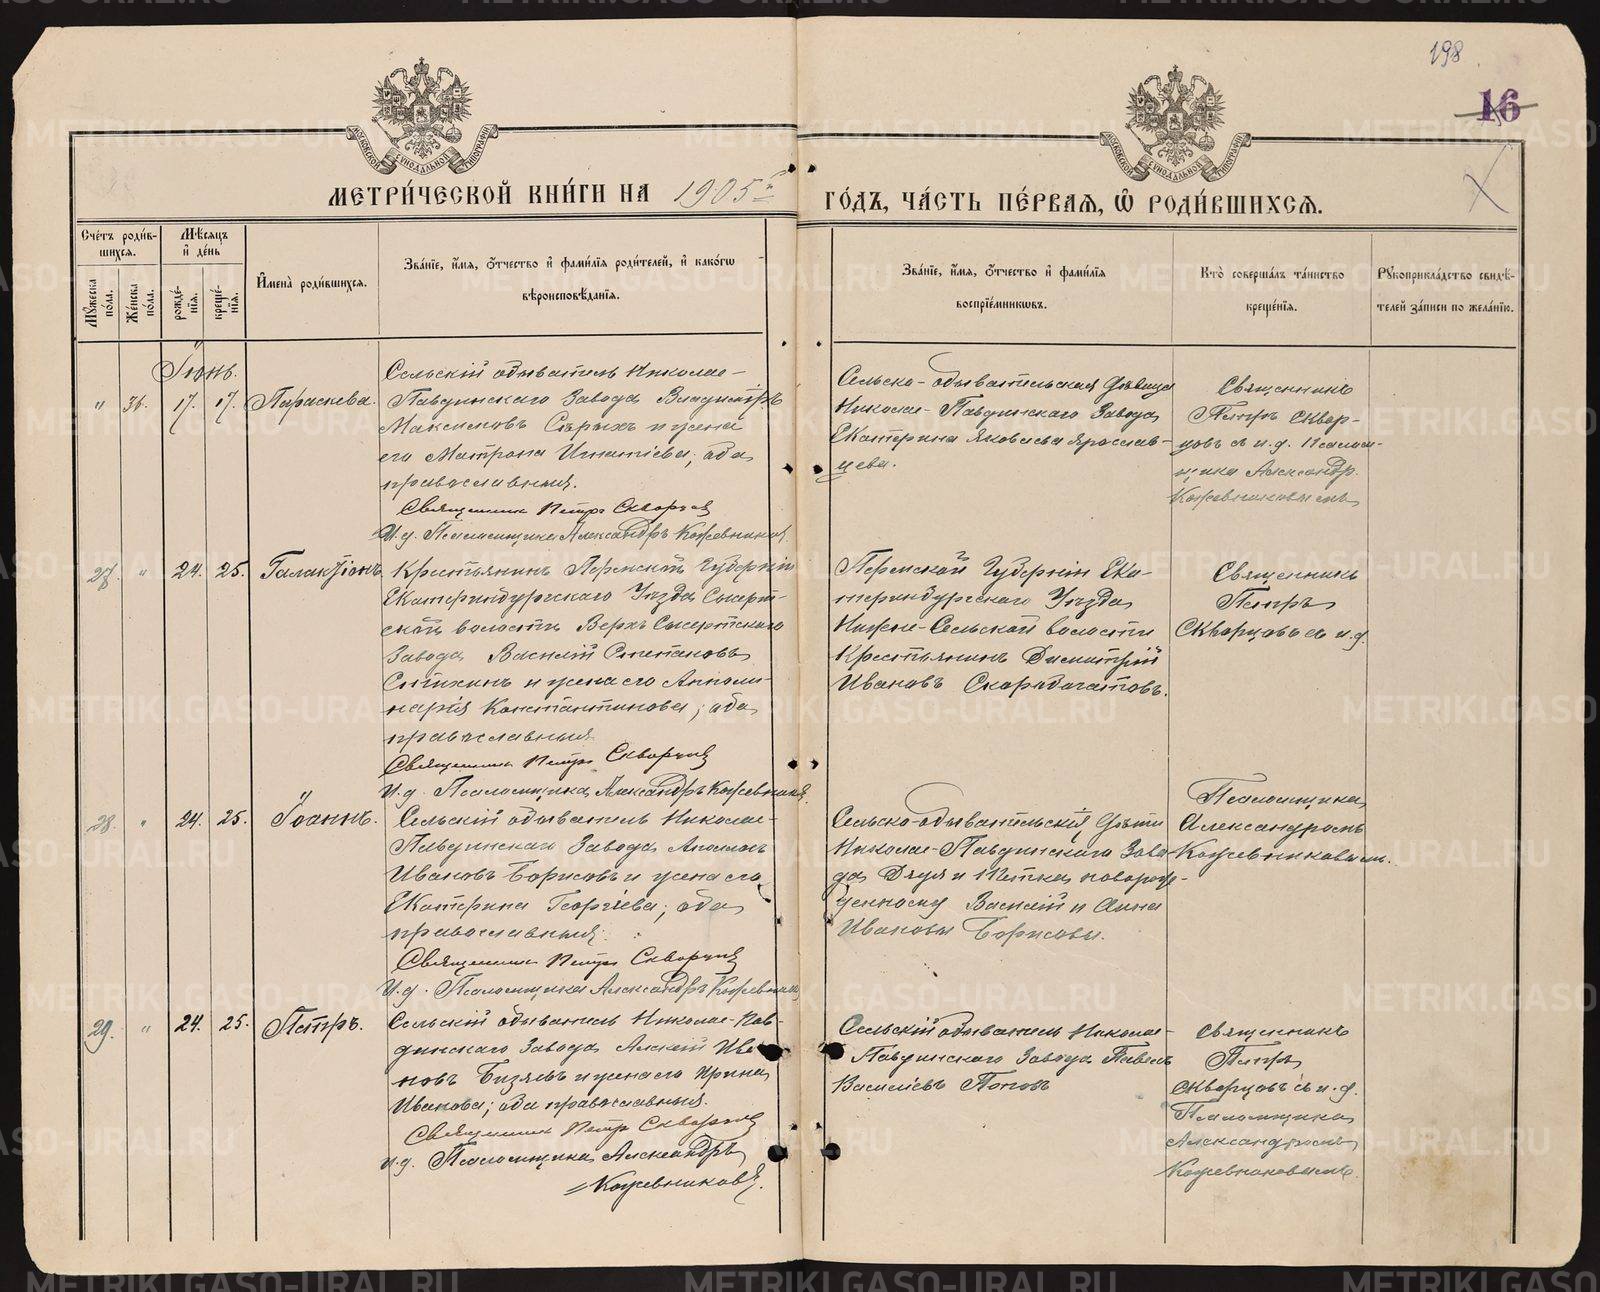 198
16
МОСКОВСКОЙ СѴНОДАЛЬНОЙ ТИПОГРАФІИ
МОСКОВСКОЙ СѴНОДАЛЬНОЙ ТИПОГРАФІИ
МЕТРИ́ЧЕСКОЙ КНИ́ГИ НА 1905 й
ГО́ДЪ, ЧА́СТЬ ПЕ́РВАЯ, Ѡ РОДИ́ВШИХСЯ.
Сче́тъ роди́в-
шихся.
Мѣ́сяцъ
и҆ де́нь
Мꙋ́жеска
по́ла.
Же́нска
по́ла.
рожде́-
нїя.
креще́-
нїя.
И҆мена̀ роди́вшихся.
Зва́нїе, и҆́мя, ѻ҆́тчество и҆ фами́лїя роди́телей, и҆ како́гѡ
вѣроисповѣ́данїя.
Зва́нїе, и҆́мя, ѻ҆́тчество и҆ фами́лїя
воспрїе́мникѡвъ.
Кто̀ соверша́лъ та́инство
креще́нїя.
Рꙋкоприкла́дство свидѣ́-
телей за́писи по жела́нїю.
Іюнь.
" 36. 17. 17. Параскева.
Сельскій обыватель Николае-
Павдинскаго Завода Владиміръ
Максимовъ Старыхъ и жена
его Матрона Игнатіева; оба
православныя.
Священникъ Петръ Скворцовъ
И.д. Псаломщика Александръ Кожевниковъ
Сельско-обывательская дѣвица
Николае-Павдинскаго Завода
Екатерина Яковлева Ярослав-
цева.
Священникъ
Петръ Сквор-
цовъ съ и.д. Псалом-
щика Александр.
Кожевниковымъ
27. " 24. 25. Галактіонъ.
Крестьянинъ Пермской Губерніи
Екатеринбургскаго Уѣзда Сысерт-
ской волости Верхъ Сысертскаго
Завода Василій Степановъ
Сятихинъ и жена его Апполи-
нарія Константинова; оба
православныя
Священникъ Петръ Скворцовъ
И.д. Псаломщика Александръ Кожевниковъ.
Пермской Губерніи Ека-
теринбургскаго Уѣзда
Нижне-Сельской волости
Крестьянинъ Димитрій
Ивановъ Скоробогатовъ.
Священникъ
Петръ
Скворцовъ съ и.д.
28. " 24. 25. Іоаннъ.
Сельскій обыватель Николае-
Павдинскаго Завода Аполлонъ
Ивановъ Борисовъ и жена его
Екатерина Георгіева; оба
православныя.
Священникъ Петръ Скворцовъ
И.д. Псаломщика Александръ Кожевниковъ
Сельско-обывательскій дѣти
Николае-Павдинскаго Заво-
да Дядя и тетка новорож-
денному Василій и Анна
Ивановы Борисовы.
Псаломщика
Александромъ
Кожевниковымъ.
29. " 24. 25. Петръ.
Сельскій обыватель Николае-Пав-
динскаго Завода Алексій Ива-
новъ Бизяевъ и жена его Ирина
Иванова; оба православныя.
Священникъ Петръ Скворцовъ
и.д. Псаломщика Александръ
Кожевниковъ.
Сельскій обыватель Николае-
Павдинскаго Завода Павелъ
Василіевъ Поповъ
Священникъ
Петръ
Скворцовъ съ и.д.
Псаломщика
Александромъ
Кожевниковымъ.